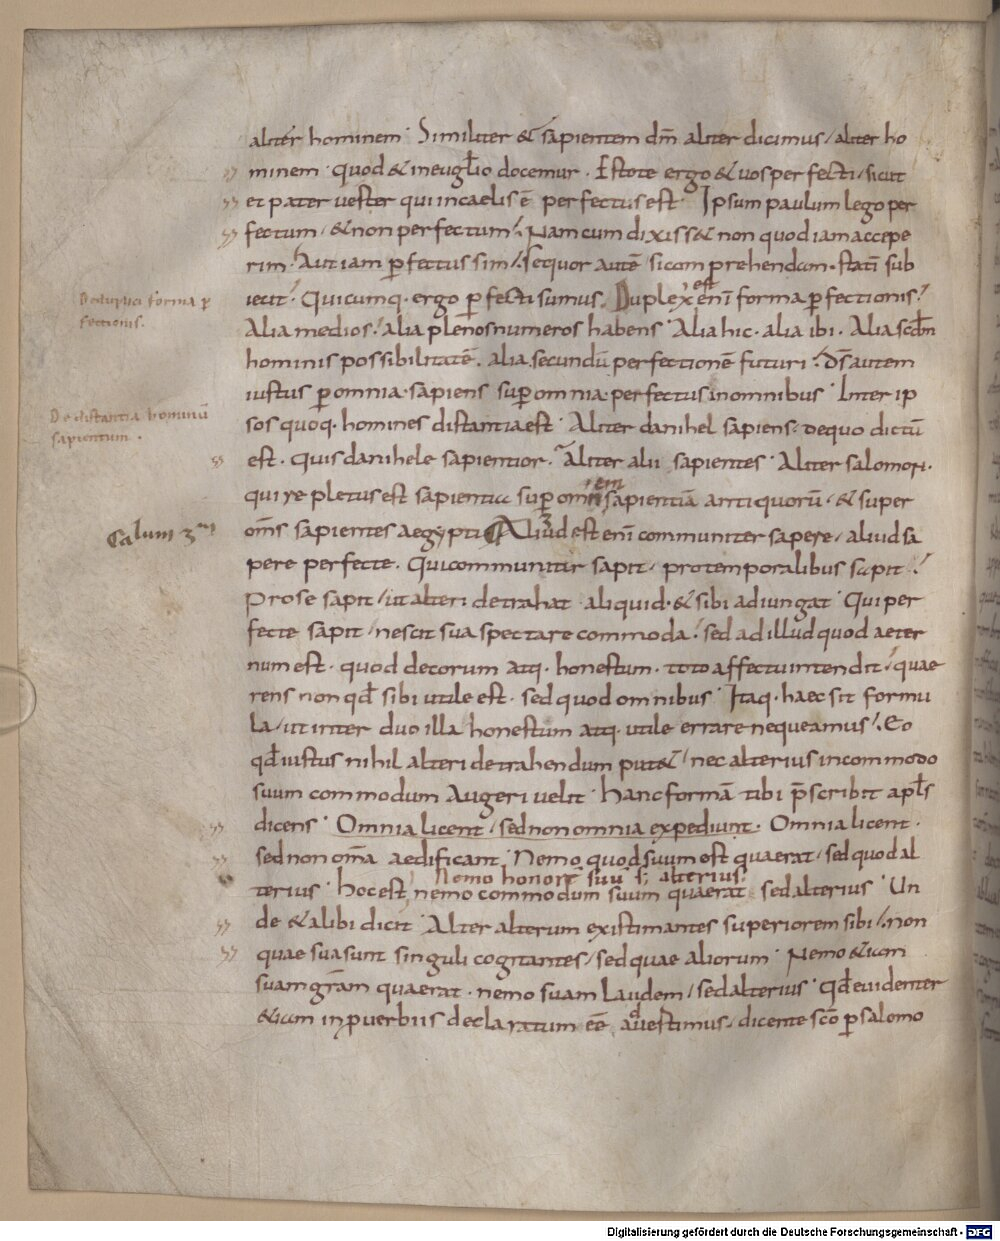 aliter hominem· Similiter & sapientem dm̄ aliter dicimus, aliter ho
minem· quod & in euglīo docemur· Estote ergo & uos perfecti, sicut
et pater uester qui in caelis ē perfectus est· Ipsum paulum lego per
fectum, & non perfectum; Nam cum dixiss& non quod iam accepe
rim; Aut iam ꝑfectus sim; sequor autē si comprehendam· statī sub
iecit; Quicumq· ergo ꝑfecti sumus; Duplex est enī forma ꝑfectionis;
De duplici forma ꝑ
fectionis.
Alia medios; alia plenos numeros habens· Alia hic· alia ibi· Alia scdm̄
hominis possibilitatē· alia secundū perfectionē futuri; d̄s autem
iustus ꝑ omnia· sapiens suꝑ omnia· perfectus in omnibus· Inter ip
De distantia hominū
sapientum.
sos quoq· homines distantia est· Aliter danihel sapiens· de quo dictū
est· quis danihele sapientior; Aliter alii sapientes· Aliter salomon·
em
qui repletus est sapientia suꝑ omnē sapientiā antiquorū· & super
Calum 3m
om̄s sapientes aegypti Aliud est enī communiter sapere, aliud sa
pere perfecte· Qui communiter sapit, pro temporalibus sapit;
Pro se sapit, ut alteri detrahat aliquid· & sibi adiungat· Qui per
fecte sapit, nescit sua spectare commoda; sed ad illud quod aeter
num est· quod decorum atq· honestum· toto affectu intendit; quae
rens non qđ sibi utile est· sed quod omnibus· Itaq· haec sit formu
la, ut inter duo illa honestum atq· utile errare nequeamus; Eo
qđ iustus nihil alteri detrahendum put&, nec alterius incommodo
suum commodum augeri uelit· hanc formā tibi p̄scribit apl̄s
dicens· Omnia licent, sed non omnia expediunt· Omnia licent·
sed non om̄a aedificant· Nemo quod suum est quaerat, sed quod al
Nemo honorē suū s; alterius;
terius· hoc est, nemo commodum suum quaerat sed alterius· Un
de & alibi dicit· Alter alterum existimantes superiorem sibi; non
quae sua sunt singuli cogitantes, sed quae aliorum· Nemo &iam
suam gram̄ quaerat· nemo suam laudem, sed alterius· Qđ euidenter
&iam in ꝓuerbiis declaratum eē aduestimus, dicente scō ꝑ salomo
Digitalisierung gefördert durch die Deutsche Forschungsgemeinschaft - DFG